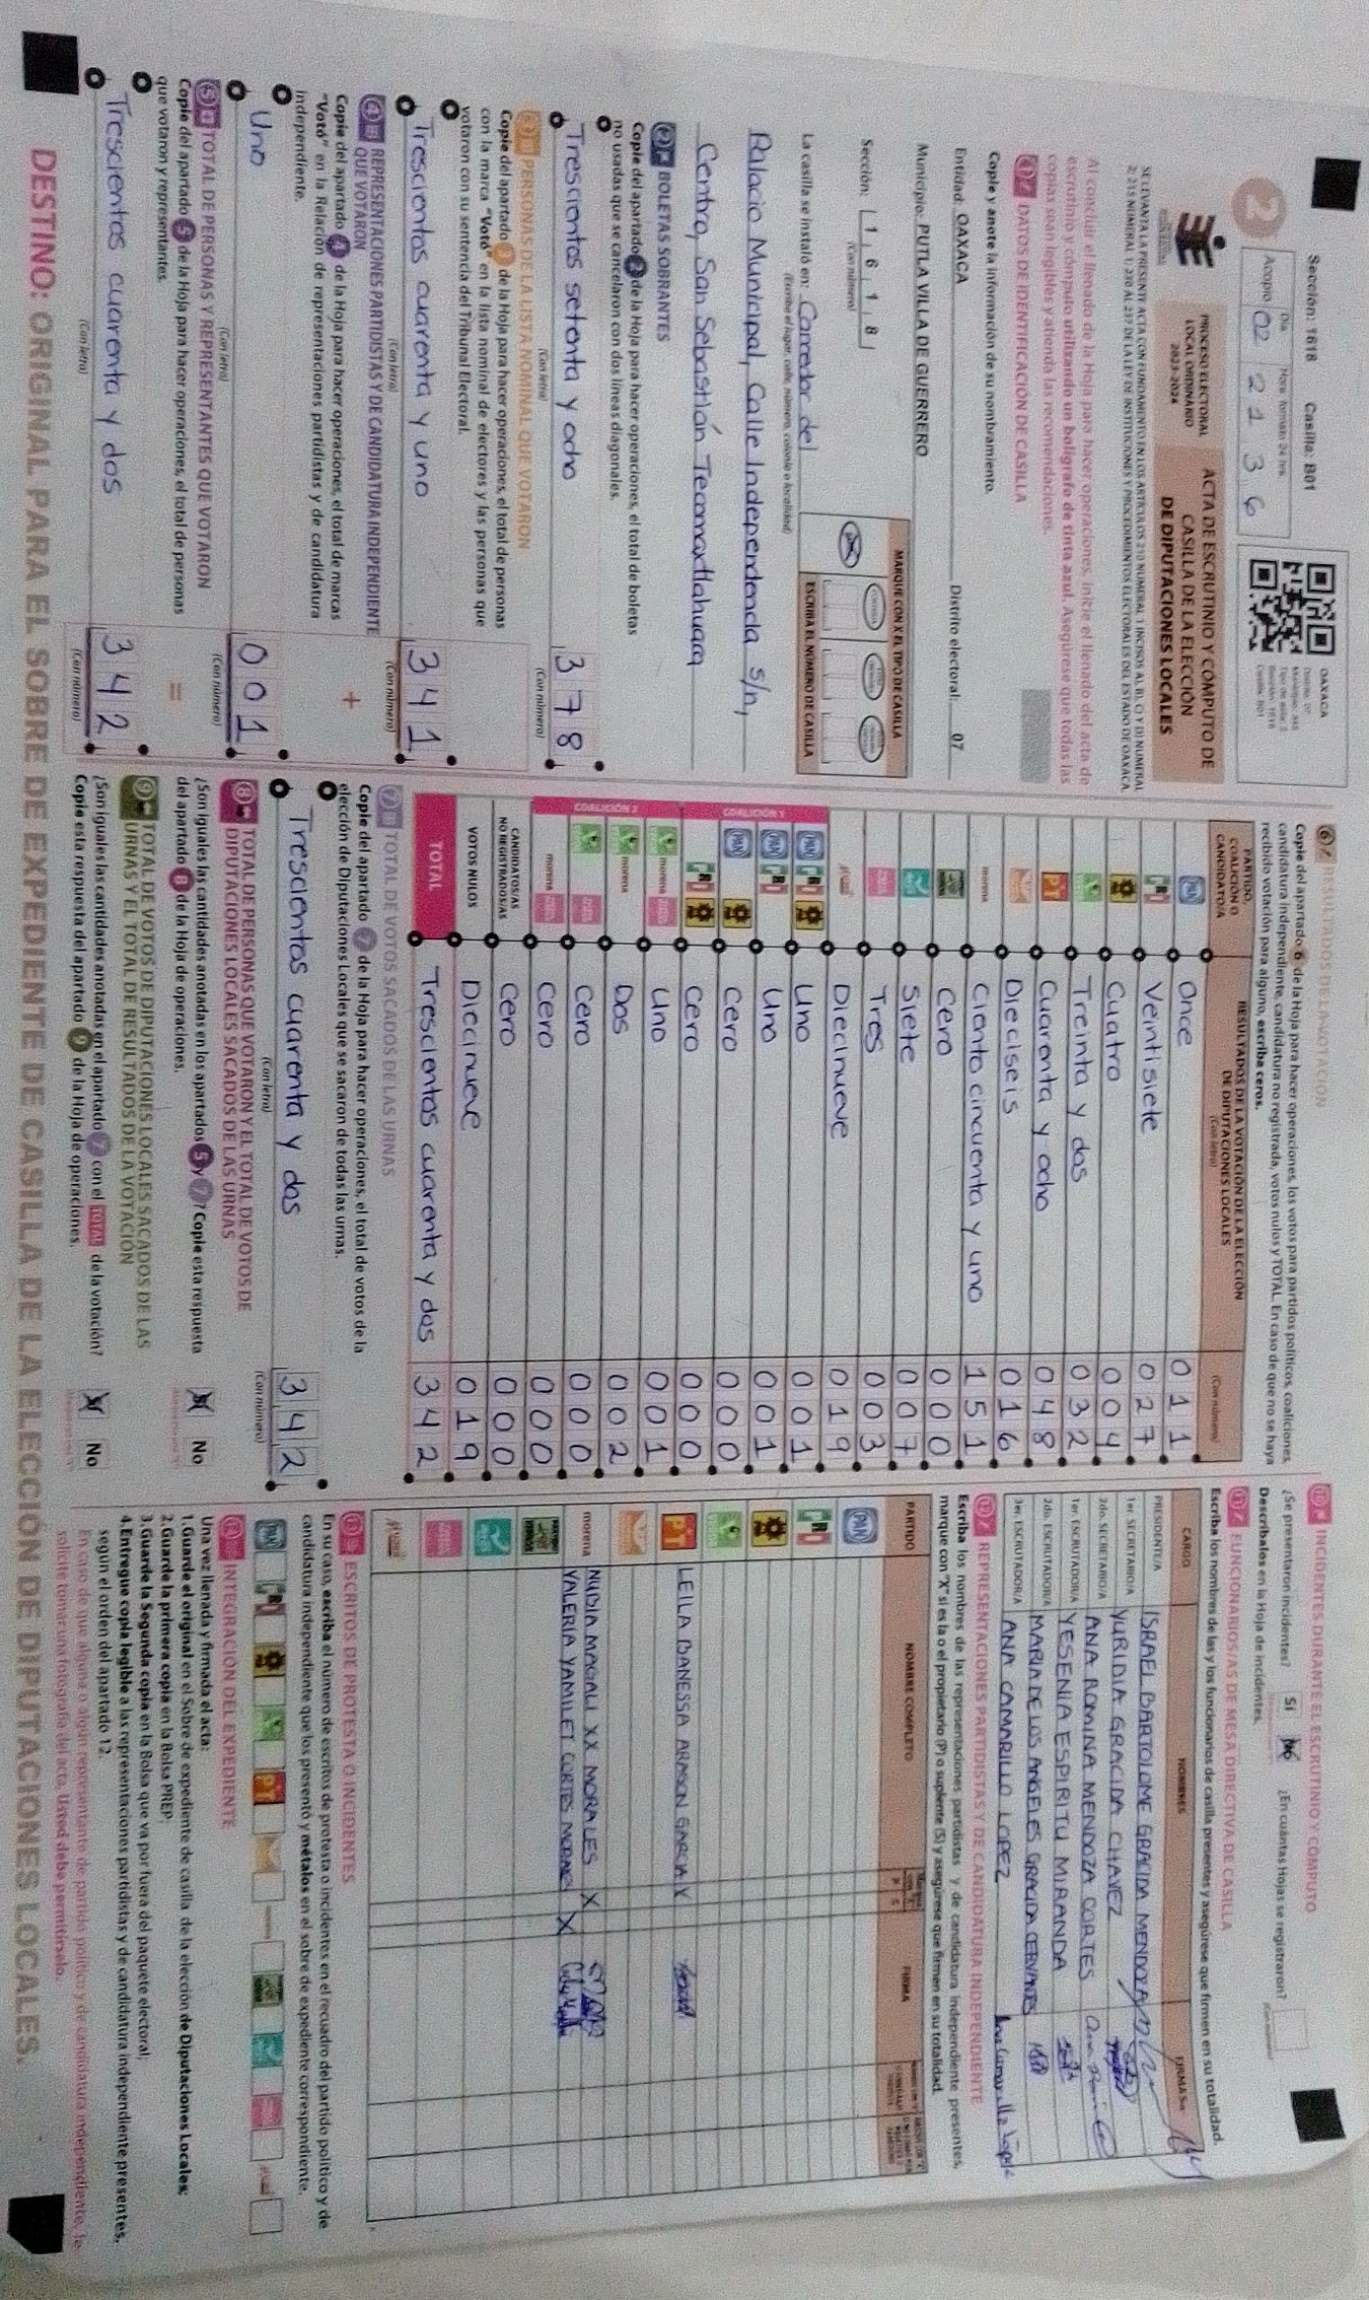 Sección: 1618 Casilla: B01
OAXACA
Día Hora (formato 24 hrs.
2 Acopio 02 21 36
PROCESO ELECTORAL
LOCAL ORDINARIO
2023-2024
ACTA DE ESCRUTINIO Y CÓMPUTO DE
CASILLA DE LA ELECCIÓN
DE DIPUTACIONES LOCALES
Al concluir el llenado de la Hoja para hacer operaciones, inicie el llenado del acta de
escrutinio y cómputo utilizando un bolígrafo de tinta azul. Asegúrese que todas las
copias sean legibles y atienda las recomendaciones.
1 DATOS DE IDENTIFICACIÓN DE CASILLA
Copie y anote la información de su nombramiento.
Entidad: OAXACA Distrito electoral: 07
Municipio: PUTLA VILLA DE GUERRERO
Sección: 1618
(Con número)
MARQUE CON X EL TIPO DE CASILLA
ESCRIBA EL NÚMERO DE CASILLA
La casilla se instaló en: Corredor del
(Escriba el lugar, calle, número, colonia o localidad)
Palacio Municipal, Calle Independencia s/n,
Centro, San Sebastián Tecomaxtlahuaca
2 BOLETAS SOBRANTES
Copie del apartado 2 de la Hoja para hacer operaciones, el total de boletas
no usadas que se cancelaron con dos líneas diagonales.
Trescientos setenta y ocho 378
(Con letra) (Con número)
3 PERSONAS DE LA LISTA NOMINAL QUE VOTARON
Copie del apartado 3 de la Hoja para hacer operaciones, el total de personas
con la marca "Votó" en la lista nominal de electores y las personas que
votaron con su sentencia del Tribunal Electoral.
Trescientos cuarenta y uno 341
(Con letra) (Con número)
4 REPRESENTACIONES PARTIDISTAS Y DE CANDIDATURA INDEPENDIENTE
QUE VOTARON
+
Copie del apartado 4 de la Hoja para hacer operaciones, el total de marcas
"Votó" en la Relación de representaciones partidistas y de candidatura
independiente.
Uno 001
(Con letra) (Con número)
5 TOTAL DE PERSONAS Y REPRESENTANTES QUE VOTARON
=
Copie del apartado 5 de la Hoja para hacer operaciones, el total de personas
que votaron y representantes.
Trescientos cuarenta y dos 342
(Con letra) (Con número)
6 RESULTADOS DE LA VOTACIÓN
Copie del apartado 6 de la Hoja para hacer operaciones, los votos para partidos políticos, coaliciones,
candidatura independiente, candidatura no registrada, votos nulos y TOTAL. En caso de que no se haya
recibido votación para alguno, escriba ceros.
PARTIDO,
COALICIÓN O
CANDIDATO/A
RESULTADOS DE LA VOTACIÓN DE LA ELECCIÓN
DE DIPUTACIONES LOCALES
(Con letra) (Con número)
PAN Once 011
PRI Veintisiete 027
PRD Cuatro 004
Treinta y dos 032
PT Cuarenta y ocho 048
Dieciseis 016
morena Ciento cincuenta y uno 151
Cero 000
Siete 007
Tres 003
Diecinueve 019
COALICIÓN 1
PAN PRI PRD Uno 001
PAN PRI Uno 001
PAN PRD Cero 000
PRI PRD Cero 000
COALICIÓN 2
morena Uno 001
morena Dos 002
Cero 000
morena Cero 000
CANDIDATOS/AS
NO REGISTRADOS/AS Cero 000
VOTOS NULOS Diecinueve 019
TOTAL Trescientos cuarenta y dos 342
7 TOTAL DE VOTOS SACADOS DE LAS URNAS
Copie del apartado 7 de la Hoja para hacer operaciones, el total de votos de la
elección de Diputaciones Locales que se sacaron de todas las urnas.
Trescientos cuarenta y dos 342
(Con letra) (Con número)
8 TOTAL DE PERSONAS QUE VOTARON Y EL TOTAL DE VOTOS DE
DIPUTACIONES LOCALES SACADOS DE LAS URNAS
¿Son iguales las cantidades anotadas en los apartados 5 y 7? Copie esta respuesta
del apartado 8 de la Hoja de operaciones. No
9 TOTAL DE VOTOS DE DIPUTACIONES LOCALES SACADOS DE LAS
URNAS Y EL TOTAL DE RESULTADOS DE LA VOTACIÓN
¿Son iguales las cantidades anotadas en el apartado 7 con el TOTAL de la votación?
Copie esta respuesta del apartado 9 de la Hoja de operaciones. No
10 INCIDENTES DURANTE EL ESCRUTINIO Y CÓMPUTO
¿Se presentaron incidentes? Sí No ¿En cuántas Hojas se registraron?
Descríbalos en la Hoja de incidentes.
11 FUNCIONARIOS/AS DE MESA DIRECTIVA DE CASILLA
Escriba los nombres de las y los funcionarios de casilla presentes y asegúrese que firmen en su totalidad.
CARGO NOMBRES FIRMAS
PRESIDENTE/A ISRAEL BARTOLOME GRACIDA MENDOZA
1er. SECRETARIO/A YURIDIA GRACIDA CHAVEZ
2do. SECRETARIO/A ANA ROMINA MENDOZA CORTES
1er. ESCRUTADOR/A YESENIA ESPIRITU MIRANDA
2do. ESCRUTADOR/A MARIA DE LOS ANGELES GRACIDA CERVANTES
3er. ESCRUTADOR/A ANA CAMARILLO LOPEZ Ana Camarillo López
12 REPRESENTACIONES PARTIDISTAS Y DE CANDIDATURA INDEPENDIENTE
Escriba los nombres de las representaciones partidistas y de candidatura independiente presentes,
marque con "X" si es la o el propietario (P) o suplente (S) y asegúrese que firmen en su totalidad.
PARTIDO NOMBRE COMPLETO P S FIRMA
PAN
PRI
PRD
PT LEILA DANESSA ARAGON GARCIA X
morena NUDIA MAGALI XX MORALES X
VALERIA YAMILET CORTES MORALES X
13 ESCRITOS DE PROTESTA O INCIDENTES
En su caso, escriba el número de escritos de protesta o incidentes en el recuadro del partido político y de
candidatura independiente que los presentó y métalos en el sobre de expediente correspondiente.
PAN PRI PRD PT
14 INTEGRACIÓN DEL EXPEDIENTE
Una vez llenada y firmada el acta:
1.Guarde el original en el Sobre de expediente de casilla de la elección de Diputaciones Locales;
2.Guarde la primera copia en la Bolsa PREP;
3.Guarde la Segunda copia en la Bolsa que va por fuera del paquete electoral;
4.Entregue copia legible a las representaciones partidistas y de candidatura independiente presentes,
según el orden del apartado 12.
En caso de que alguna o algún representante de partido político y de candidatura independiente, le
solicite tomar una fotografía del acta, Usted debe permitírselo.
DESTINO: ORIGINAL PARA EL SOBRE DE EXPEDIENTE DE CASILLA DE LA ELECCIÓN DE DIPUTACIONES LOCALES.